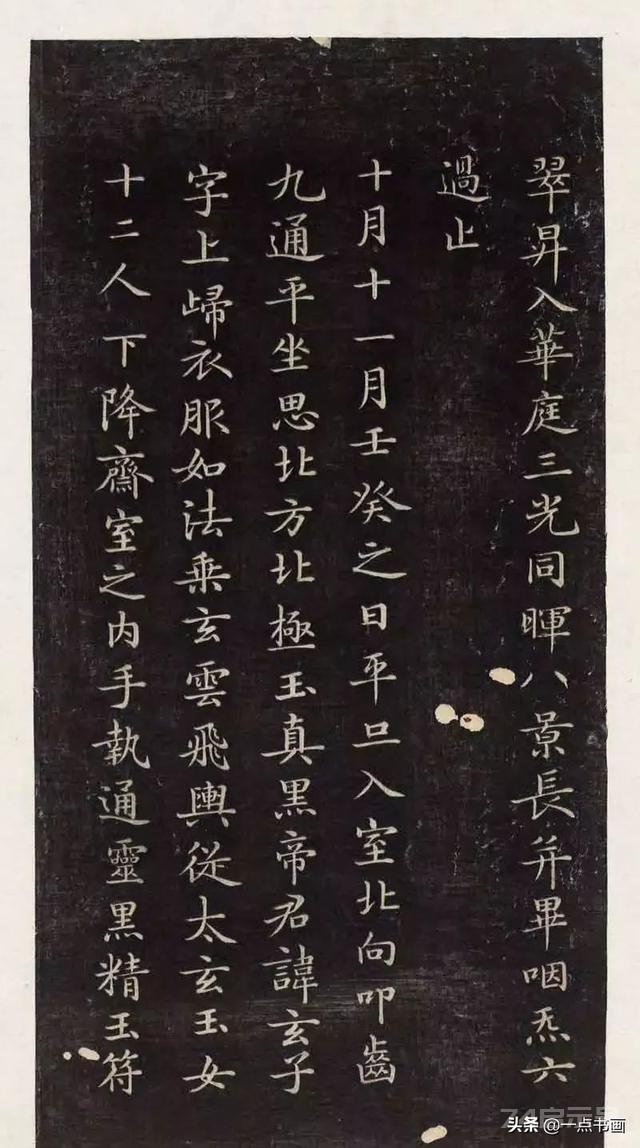 翠昇入華庭三光同暉八景長并畢咽炁六
過止
十月十一月壬癸之日平旦入室北向叩齒
九通平坐思北方北極玉真黑帝君諱玄子
字上歸衣服如法乗玄雲飛輿從太玄玉女
十二人下降齋室之内手執通靈黑精玉符
头条 @一点书画